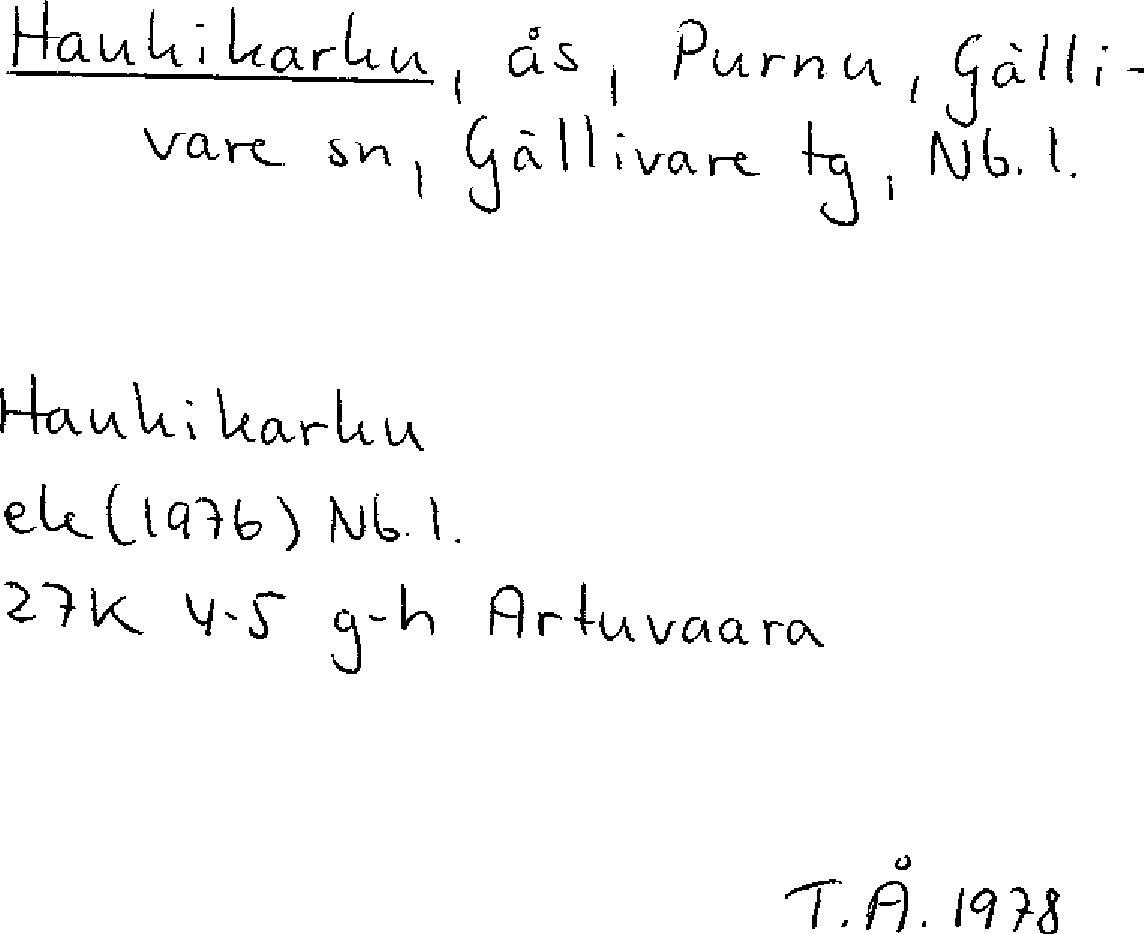 Haukikarku, ås, Purnu, Gälli-
vare sn, Gällivare tg, Nb. l.
Haukikarku
ek (1976) Nb. l.
27K 4-5 g-h Artuvaara
T.Å. 1978